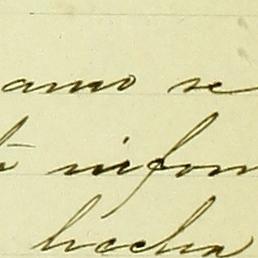 amo se
nifon
hecha